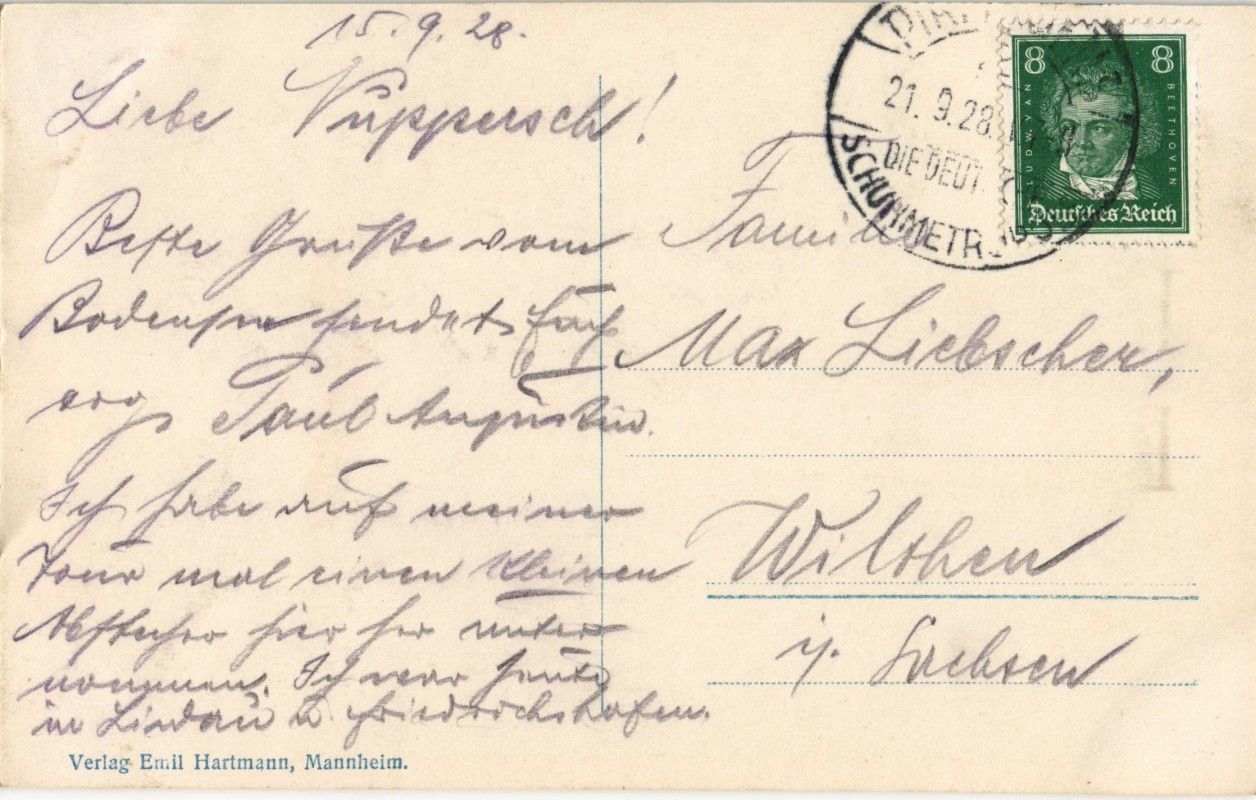 15.9.28.
Liebe Vuppersch!
Beste Grüße vom
Bodensee sendet Euch
Paul Augustin.
Ich habe auf meiner
Tour mal einen kleinen
Abstecher hier her unter
nommen. Ich war heute
in Lindau u Friedrichshafen.
Verlag Emil Hartmann, Mannheim.
21.9.28.
DIE DEUT
8 8
LUDW. VAN BEETHOVEN
Deutsches Reich
Familie
Max Liebscher,
Wilthen
i/. Sachsen